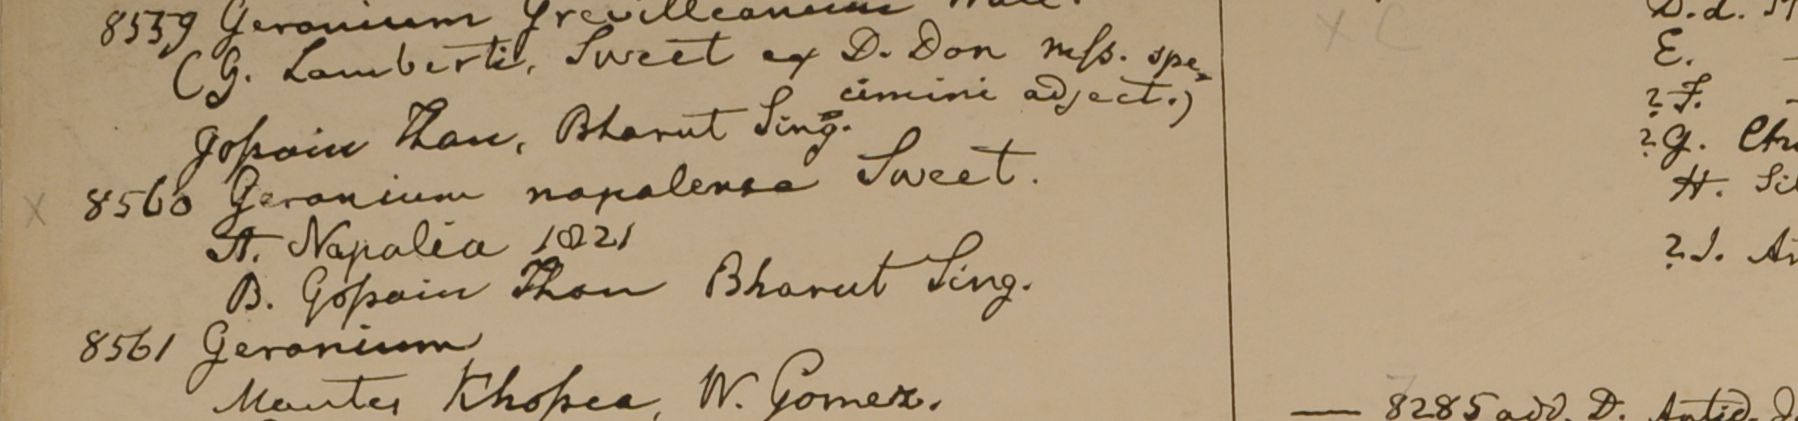 8559 Geranium Grevilleanum Wall.
(G. Lamberti, Sweet ex D. Don mss. spe-
cimini adject.)
Gossain Than, Bharut Sing.
x 8560 Geranium napalense Sweet.
A. Napalia 1821
B. Gossain Than Bharut Sing.
8561 Geranium
Montes Khosea, W. Gomez.
x C
D.d.
E. —
? F. —
? G.
H.
? I.
— 8285 add. D.